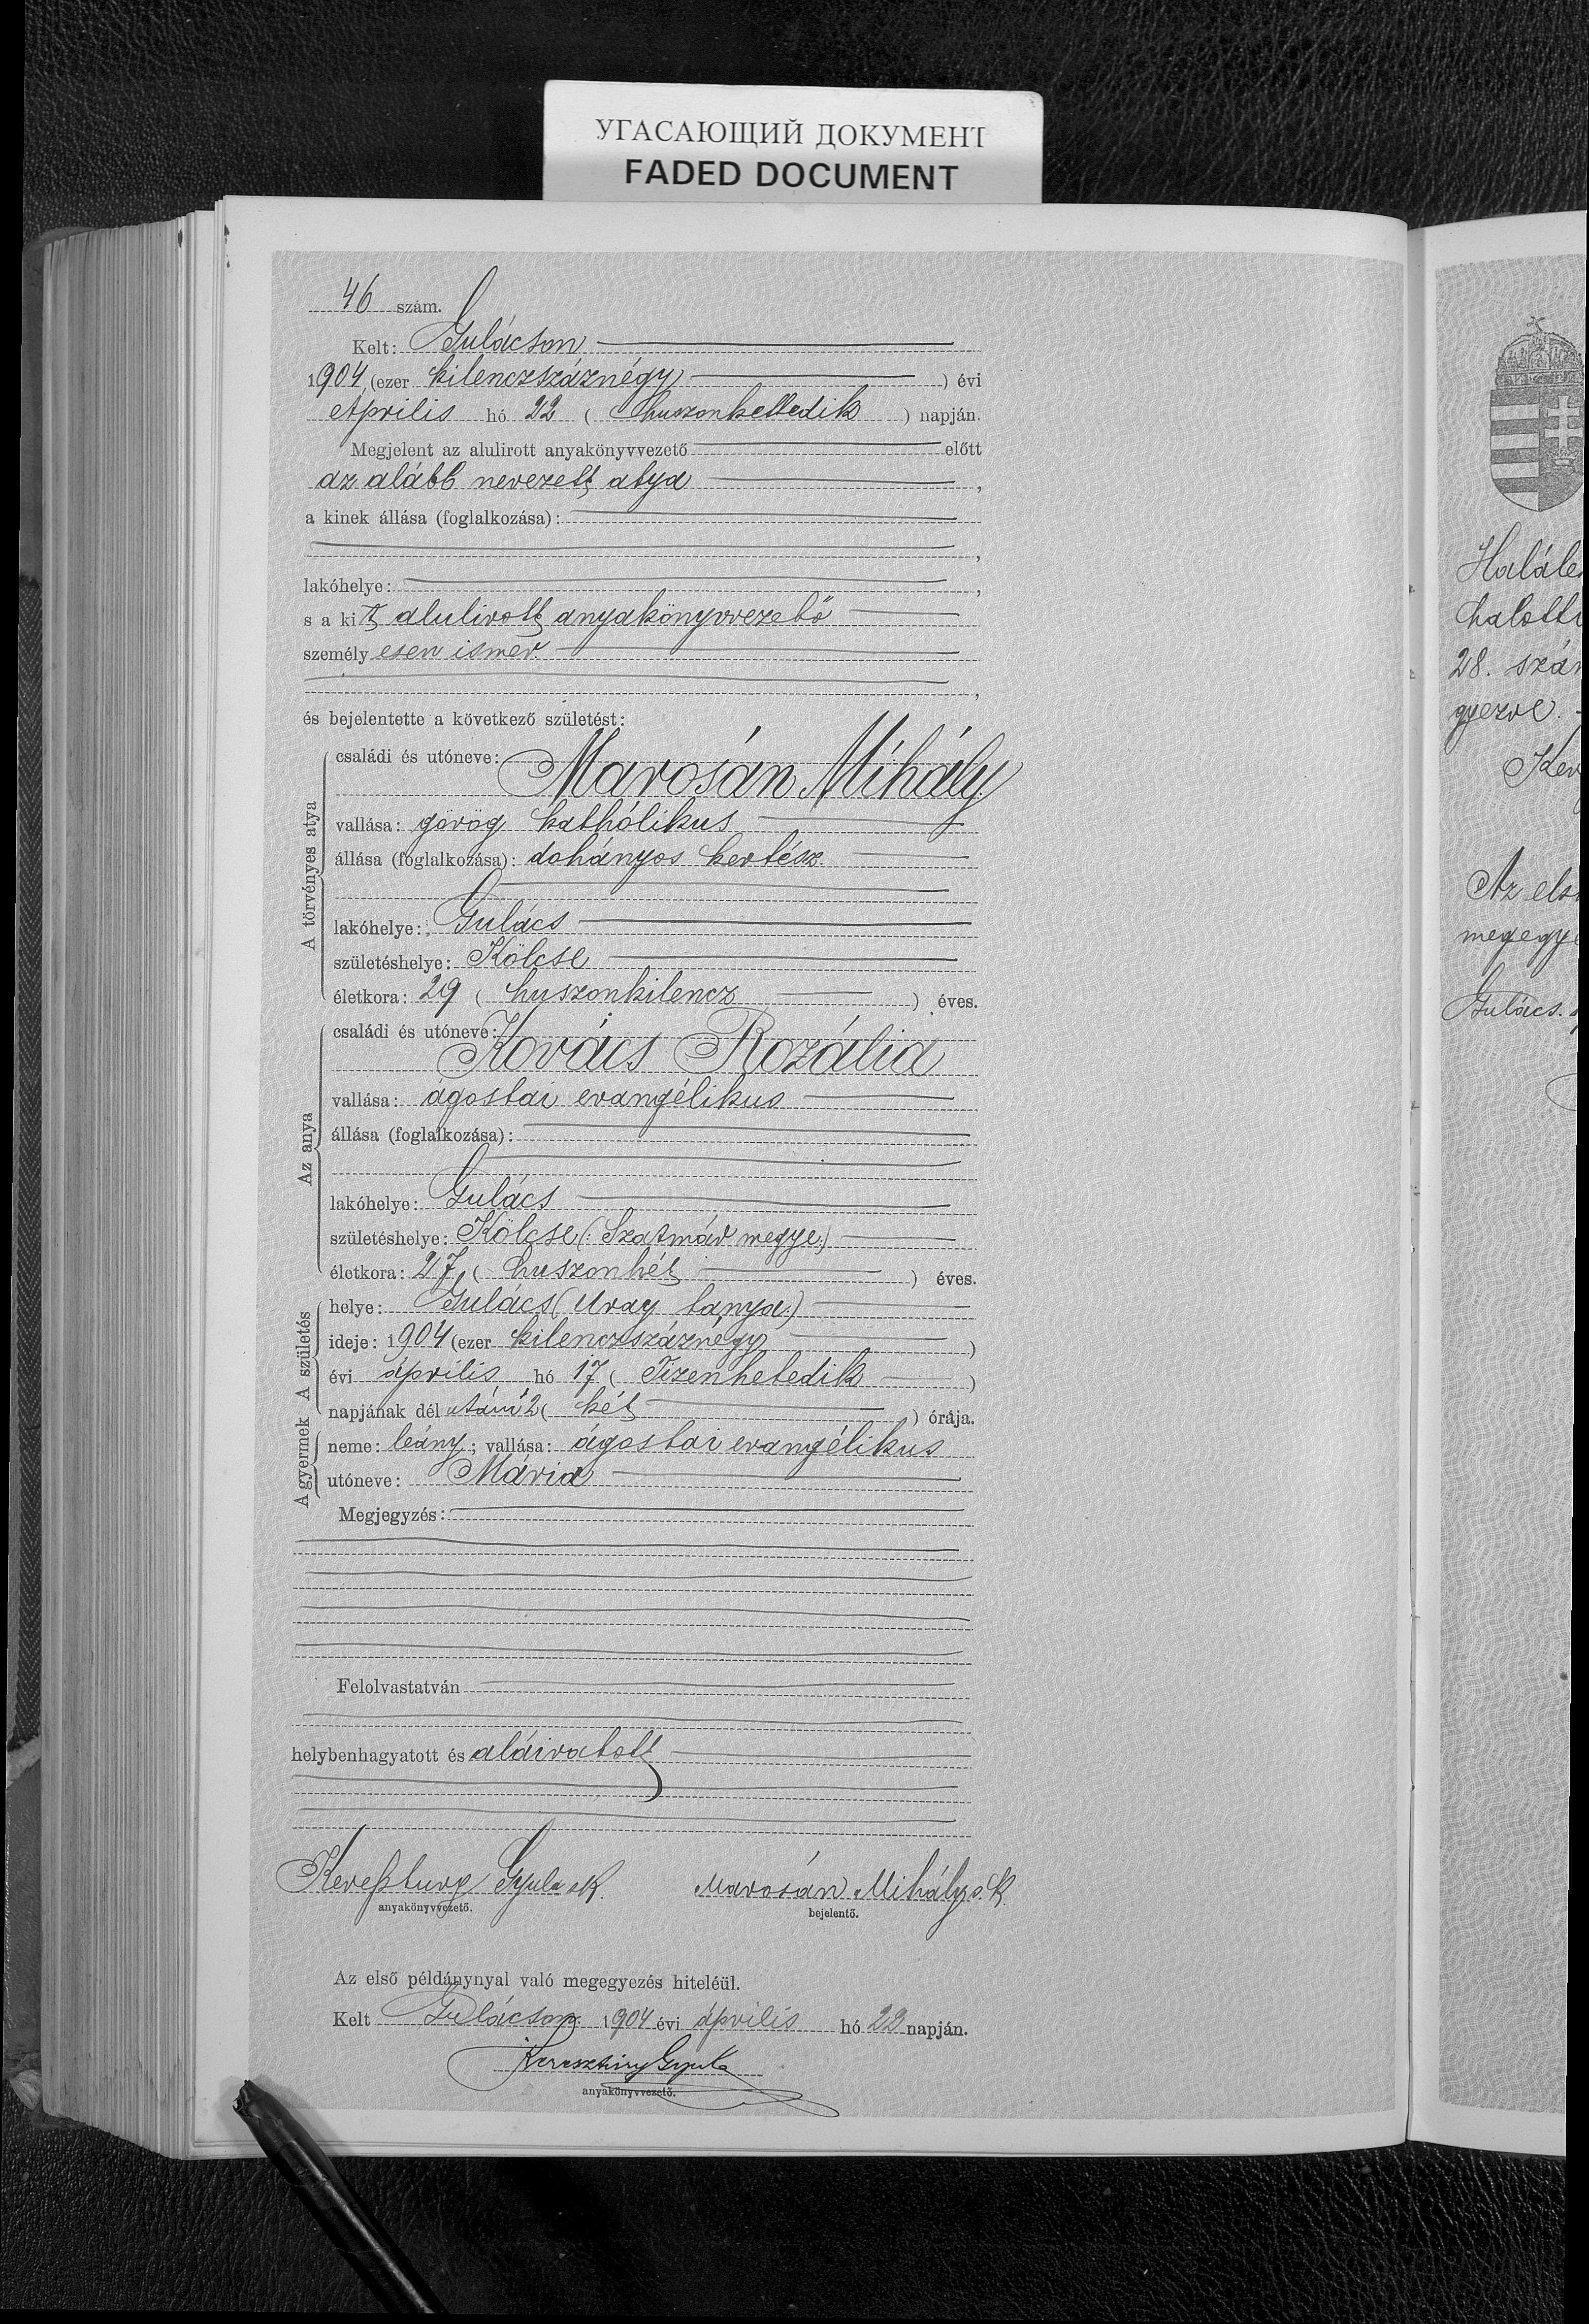 УГАСАЮЩИЙ ДОКУМЕНТ
FADED DOCUMENT
46 szám.
Kelt: Gulácson
1904 (ezer kilenczszáznégy) évi
Április hó 22 (huszonkettedik) napján.
Megjelent az alulirott anyakönyvvezető előtt
az alább nevezett atya,
a kinek állása (foglalkozása):
,
lakóhelye: ,
s a kit alulirott anyakönyvvezető
személyesen ismer.
,
és bejelentette a következő születést:
A törvényes atya
családi és utóneve: Marosán Mihály
vallása: görög kathólikus
állása (foglalkozása): dohányos kertész
lakóhelye: Gulács
születéshelye: Kölcse
életkora: 29 (huszonkilencz) éves.
Az anya
családi és utóneve: Kovács Rozália
vallása: ágostai evangélikus
állása (foglalkozása):
lakóhelye: Gulács
születéshelye: Kölcse (: Szatmár megye.)
életkora: 27 (huszonhét) éves.
A születés
helye: Gulács (Uray tanya.)
ideje: 1904 (ezer kilenczszáznégy)
évi április hó 17 (Tizenhetedik)
napjának dél utáni 2 (két) órája.
A gyermek
neme: leány; vallása: ágostai evangélikus
utóneve: Mária
Megjegyzés:
Felolvastatván
helybenhagyatott és aláiratott
Keresztury Gyula sk. Marosán Mihály s. k.
anyakönyvvezető. bejelentő.
Az első példánynyal való megegyezés hiteléül.
Kelt Gulácson 1904 évi április hó 22 napján.
Keresztury Gyula
anyakönyvvezető.
halotti
28. szá
gyezve.
Ker
Az els
megegye
Gulács.